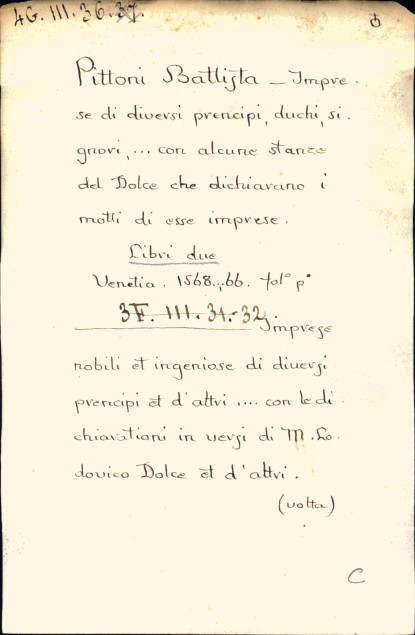 4G. III. 36. 37.
Pittoni Battista _ Impre.
se di diversi prencipi, duchi, si.
gnori, ... con alcune stanze
del Dolce che dichiarano i
motti di esse imprese.
Libri due
Venetia. 1568.,66. fol° p°
3F. III. 31.-32.
Imprese
nobili et ingeniose di diuersi
prencipi et d'altri .... con le di.
chiarationi in uersi di M. Lo.
douico Dolce et d'altri.
(volta)
C